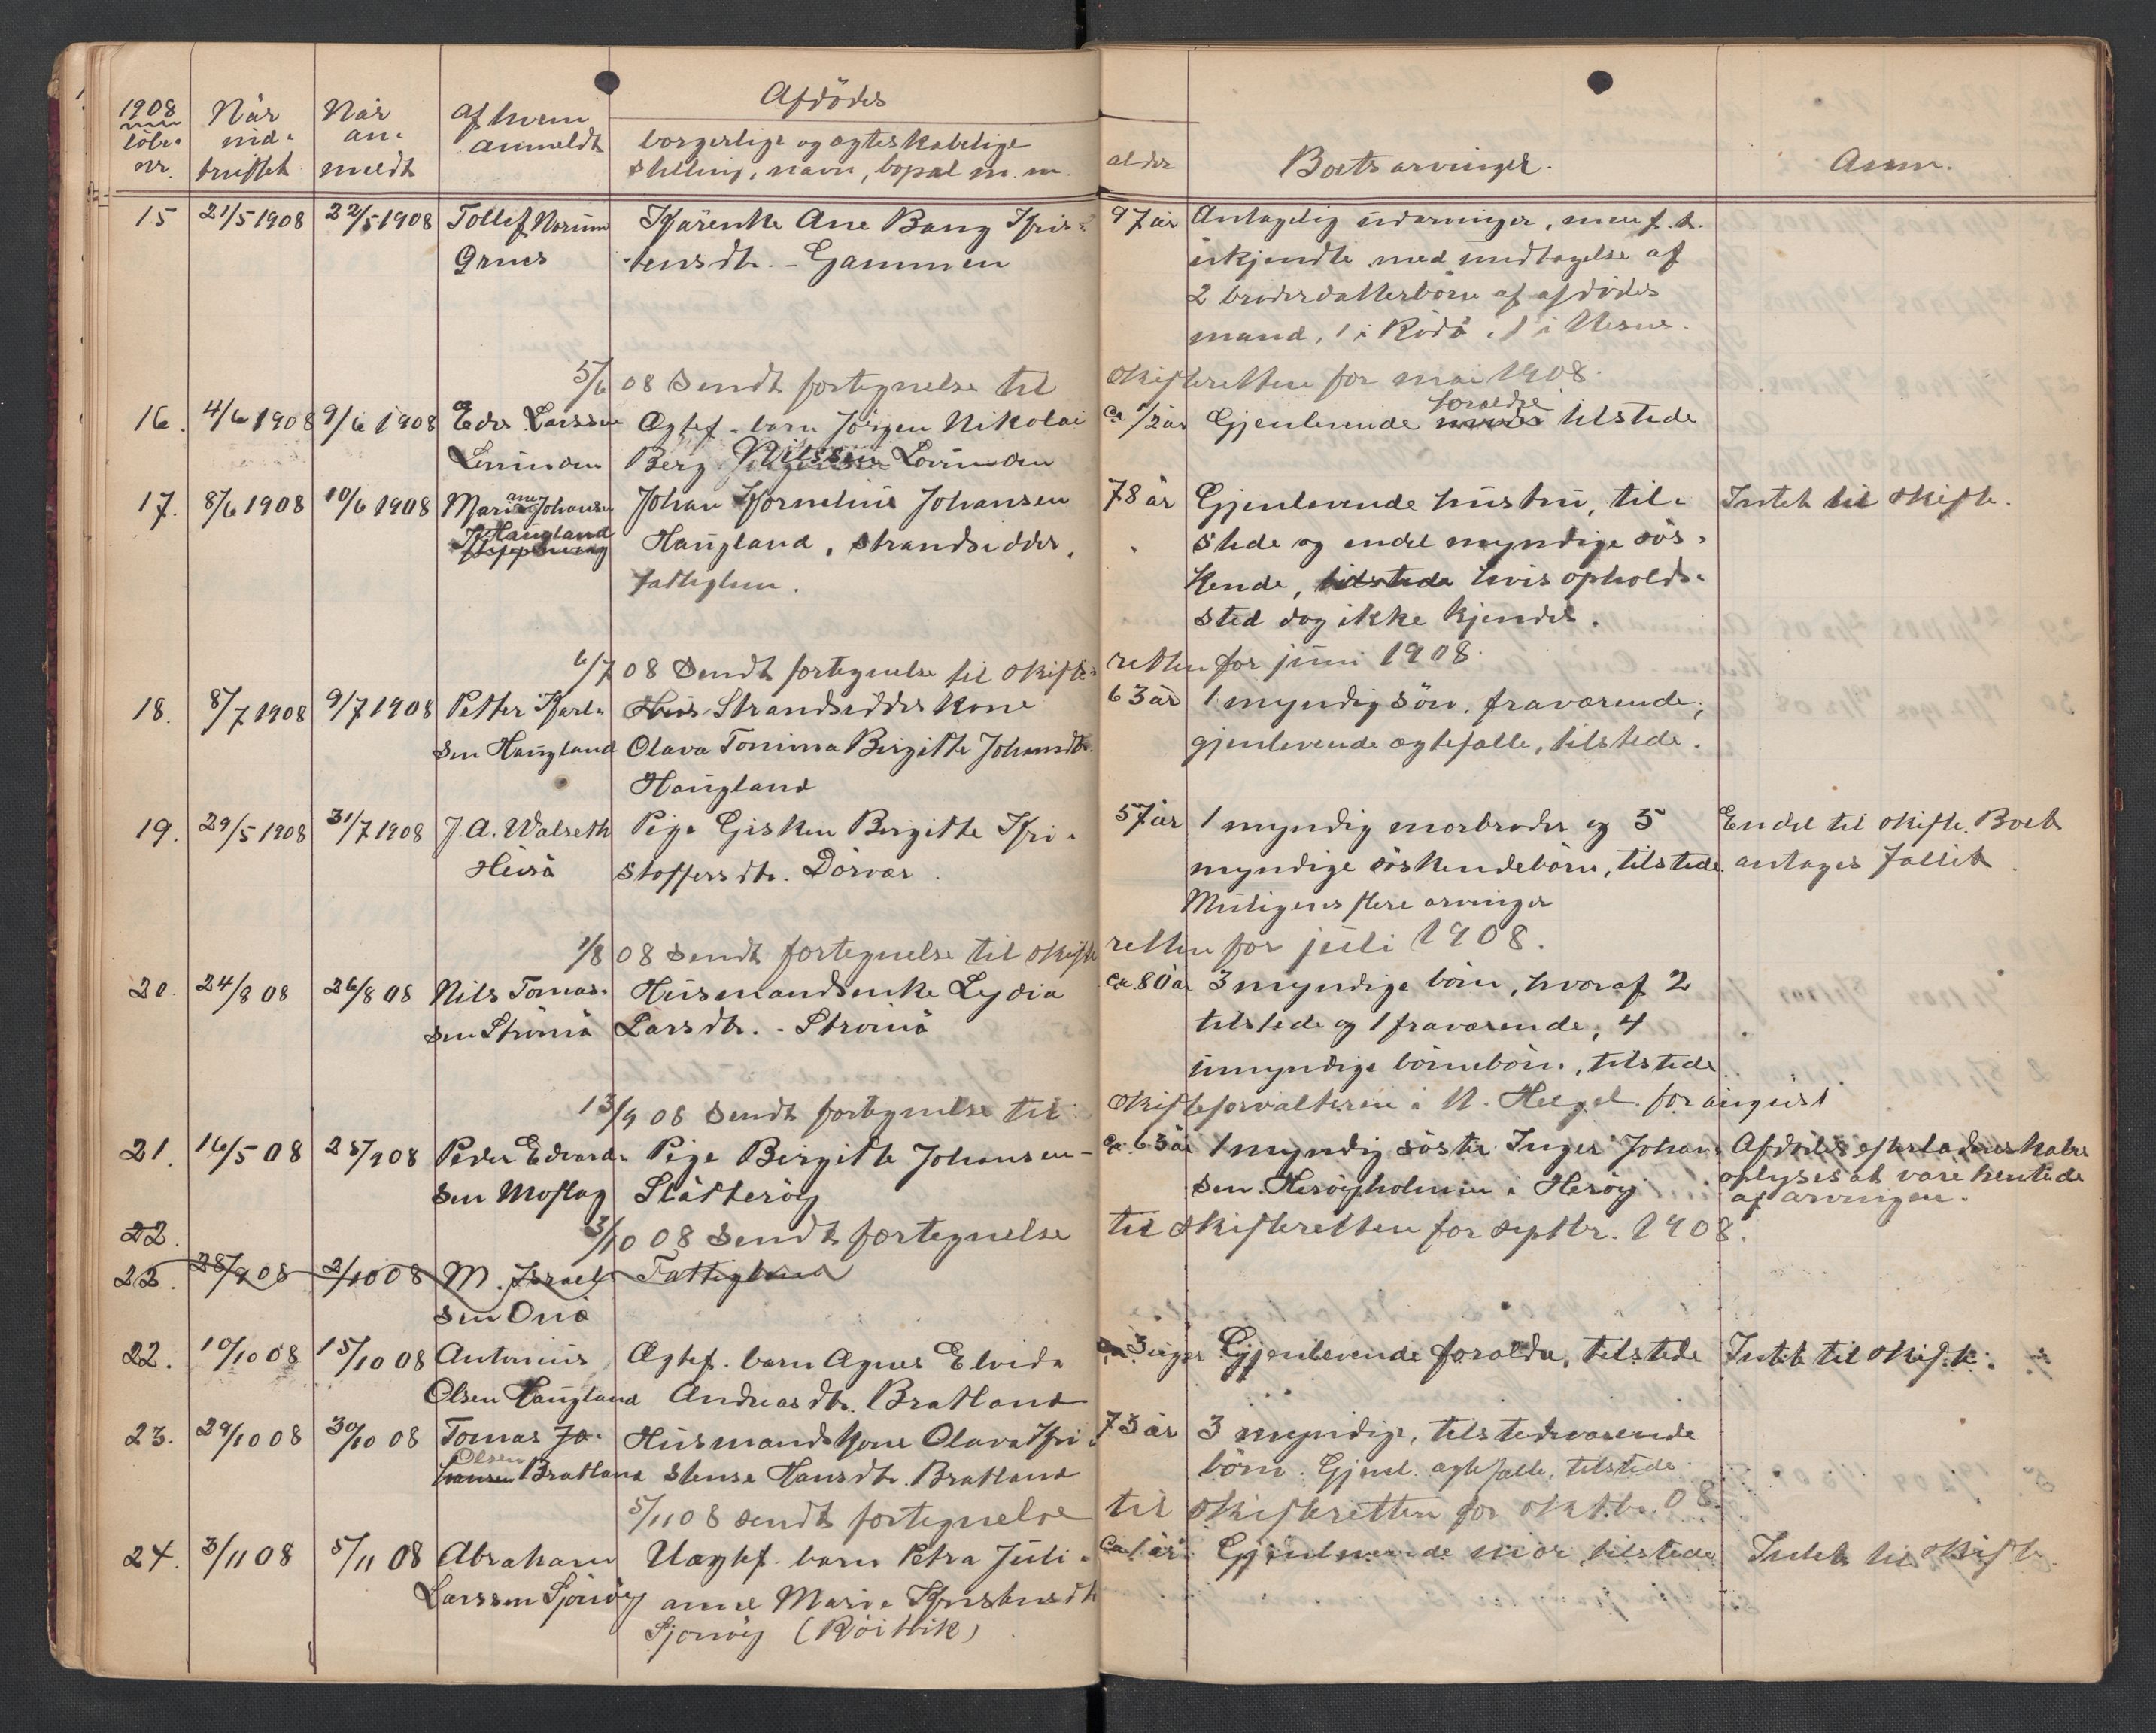 1908
löbe- nr.
Når ind- truffet
Når an- meldt
Af hvem anmeldt
Afdödes
borgerlige og ægteskabelige
stilling, navn, bopæl m. m.
alder
Boets arvinger.
Anm.
15 21/5 1908 22/5 1908 Tollef Norum Kårenke Ane Bang Kris- 97 år Antagelig udarvinger, men f. t.
Grnes tensdtr. - Gammen ukjendte med undtagelse af
2 broderdatterbörn af afdödes
mand, 1 i Rödö, 1 i Nesne.
5/6 08 Sendt fortegnelse til skifteretten for mai 1908.
16. 4/6 1908 9/6 1908 Edv. Larssen Ægtef. barn Jörgen Nikolai ca 1/2 år Gjenlevende forældre tilstede
Lovunden Berg Nilssen Lovunden
17. 8/6 1908 10/6 1908 Mariane Johansen Johan Kornelius Johansen 78 år Gjenlevende hustru, til- Intet til skifte.
Haugland Haugland, strandsidder, stede og endel myndige sös-
fattiglem. kende, tilstede hvis opholds-
sted dog ikke kjendes.
6/7 08 Sendt fortegnelse til skifteretten for juni 1908.
18. 8/7 1908 9/7 1908 Petter Karl- Hus Strandsidders kone 63 år 1 myndig sön, fraværende;
sen Haugland Olava Tomina Birgitte Johansdtr. gjenlevende ægtefælle, tilstede.
Haugland
19. 29/5 1908 31/7 1908 J. A. Walseth Pige Gisken Birgitte Kri- 57 år 1 myndig morbroder og 5 Endel til skifte. Boet
Husö stoffersdtr. Dörvær. myndige söskendebörn, tilstede. antages fallit
Muligens flere arvinger
1/8 08 sendt fortegnelse til skifteretten for juli 1908.
20. 24/8 08 26/8 08 Nils Tomas- Husmandsenke Lydia ca 80 år 3 myndige börn, hvoraf 2
sen Strömö Larsdtr. - Strömö tilstede og 1 fraværende, 4
umyndige börnebörn, tilstede.
13/9 08 sendt fortegnelse til skifteforvalteren i N. Helgel. for august
21. 16/5 08 25/9 08 Peder Edvard- Pige Birgitte Johansen- ca 63 år 1 myndig söster Inger Johan- Afdödes efterladenskaber
sen Moflag Slåtteröy sen. Heröyholmen i Heröy oplyses at være hentede
af arvingen.
22. 3/10 08 Sendt fortegnelse til skifteretten for septbr. 1908.
22. 28/9 08 2/10 08 M. Israel- Fattiglem
sen Onö
22. 10/10 08 15/10 08 Antonius Ægtef. barn Agnes Elvida ca 3 uger Gjenlevende forældre, tilstede Intet til skifte.
Olsen Haugland Andreasdtr. Bratland
23. 29/10 08 30/10 08 Tomas Jo- Husmandskone Olava Kri- 73 år 3 myndige, tilstedeværende
hansen Olsen Bratland stense Hansdtr. Bratland börn. Gjenl. ægtefælle, tilstede.
5/11 08 sendt fortegnelse til skifteretten for oktbr. 08.
24. 3/11 08 5/11 08 Abraham Uægtef. barn Petra Juli- ca 1 år Gjenlevende mor, tilstede Intet til skifte.
Larssen Sjonöy anne Marie Kristensdtr
Sjonöy (Röitvik)